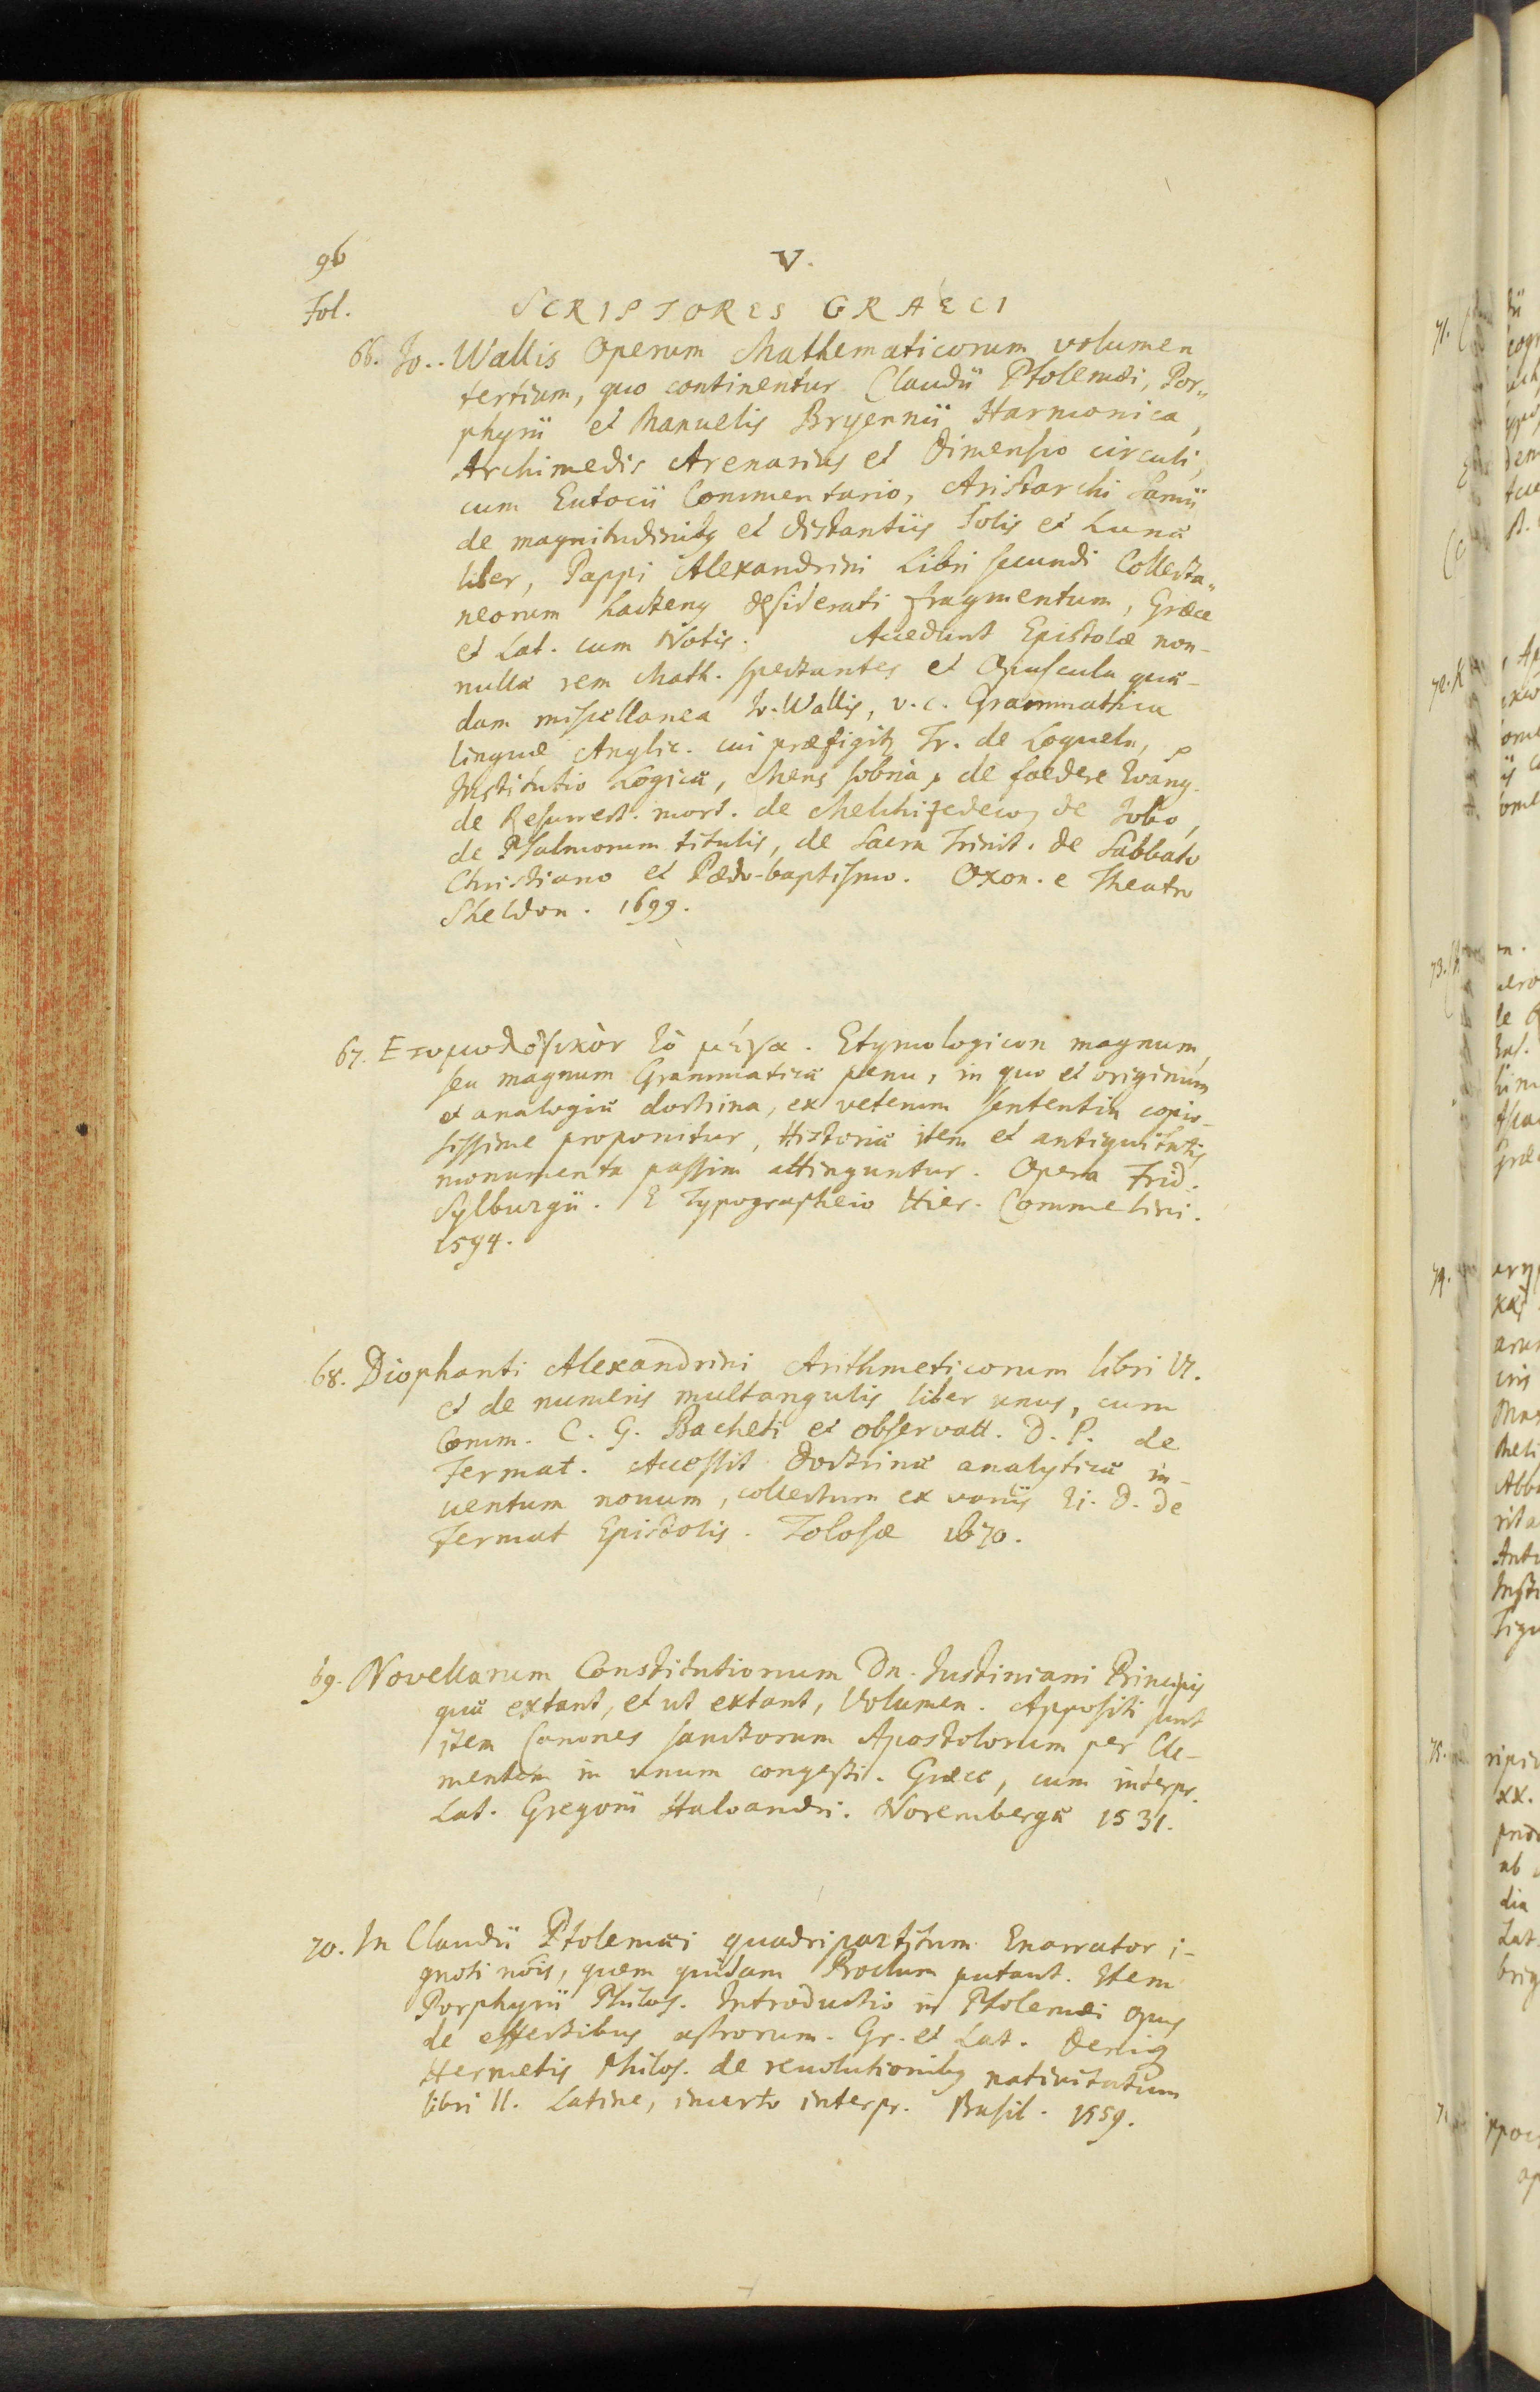 96
V.
Fol.
SCRIPTORES GRAECI
66. Io. Wallis Operum Mathematicorum volumen
tertium, quo continentur Claudii Ptolemæi, Por„
phyrii et Manuelis Bryennii Harmonica,
Archimedis Arenarius et Dimensio circuli,
cum Eutocii Commentario, Aristarchi Samii
de magnitudinibꝫ et distantiis Solis et Lunæ
liber, Pappi Alexandrini Libri secundi Collecta„
neorum hactenus desiderati fragmentum, Græce
et Lat. cum Notis. Accedunt Epistolæ non-
nullæ rem Math. spectantes et Opuscula quæ-
dam miscellanea Io. Wallis, v. c. Grammatica
linguæ Anglic. cui præfigitꝫ Tr. de Loquela,
Institutio Logicæ, Mens sobria, de foedere Evang.
de Resurrect. mort. de Melchizedeco, de Iobo,
de Psalmorum titulis, de Sacra Trinit. de Sabbato
Christiano et Pædo-baptismo. Oxon. e Theatro
Sheldon. 1699.
67. Ετυμολογικὸν τὸ μέγα. Etymologicon magnum,
seu magnum Grammaticæ penu, in quo et originum
et analogiæ doctrina, ex veterum sententia copio-
sissime proponitur, Historiæ item et antiquitatis
monumenta passim attinguntur. Opera Frid.
Sylburgii. E Typographeio Hier. Commelini.
1594.
68. Diophanti Alexandrini Arithmeticorum libri VI.
et de numeris multangulis liber unus, cum
Comm. C. G. Bacheti et observatt. D. P. de
Fermat. Accessit Doctrinæ analyticæ in-
uentum nouum, collectum ex variis Ei. D. de
Fermat Epistolis. Tolosæ 1670.
69. Novellarum Constitutionum Dn. Iustiniani Principis
quæ extant, et ut extant, Volumen. Appositi sunt
item Canones sanctorum Apostolorum per Cle-
mentem in unum congesti. Græce, cum interpr.
Lat. Gregorii Haloandri. Norembergæ 1531.
70. In Claudii Ptolemæi quadripartitum Enarrator i-
gnoti nōis, quem quidam Proclum putant. Item
Porphyrii Philos. Introductio in Ptolemæi opus
de effectibus astrorum. Gr. et Lat. Deniqꝫ
Hermetis Philos. de reuolutionibꝫ natiuitatum
libri II. Latine, incerto interpr. Basil. 1559.